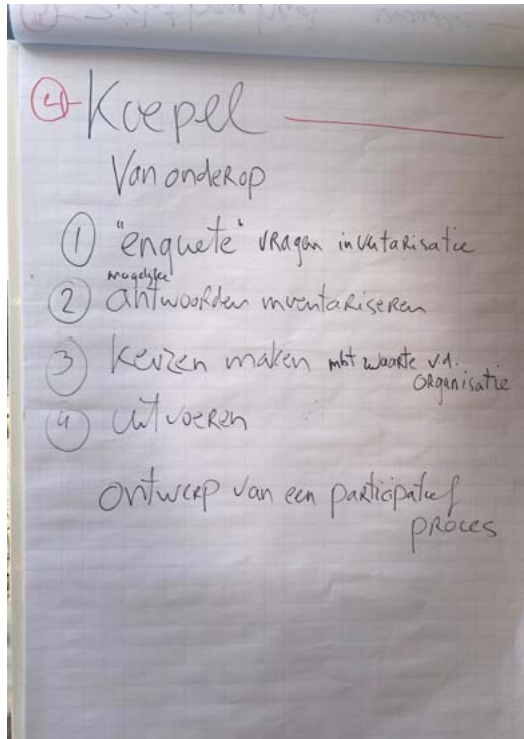 ④ Koepel
Van onderop
① "enquete" vragen inventarisatie
mogelijke
② antwoorden inventariseren
③ Keuzen maken mbt waarte v.d.
organisatie
④ uitvoeren
ontwerp van een participatief
proces